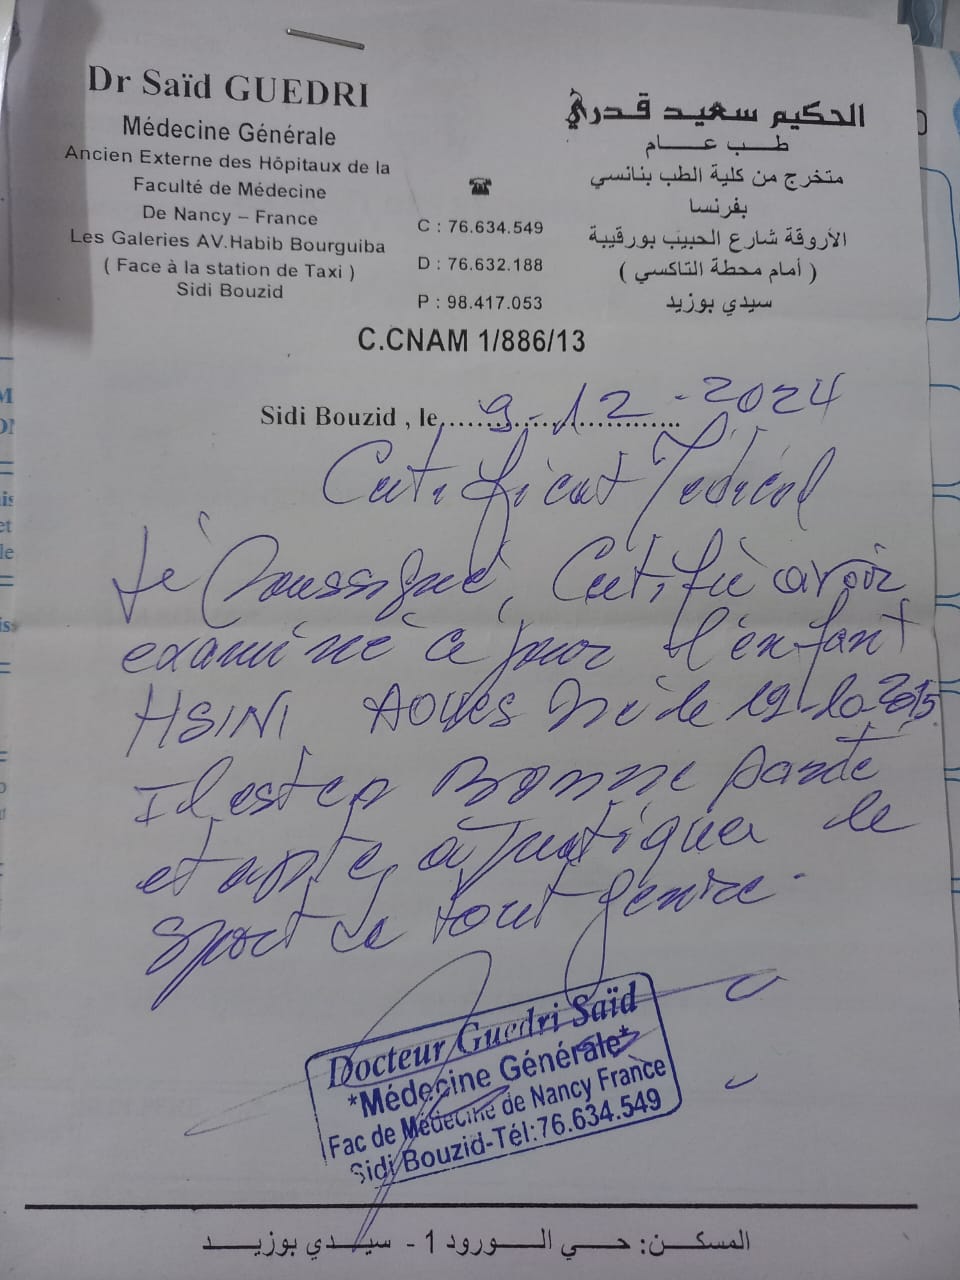 Dr Saïd GUEDRI
Médecine Générale
Ancien Externe des Hôpitaux de la
Faculté de Médecine
De Nancy – France
Les Galeries AV.Habib Bourguiba
( Face à la station de Taxi )
Sidi Bouzid
☎
C : 76.634.549
D : 76.632.188
P : 98.417.053
الحكيم سعيد قدري
طب عام
متخرج من كلية الطب بنانسي
بفرنسا
الأروقة شارع الحبيب بورقيبة
( أمام محطة التاكسي )
سيدي بوزيد
C.CNAM 1/886/13
Sidi Bouzid , le 9-12-2024
Certificat Médical
Je soussigné, Certifie avoir
examiné ce jour l'enfant
HSINI Aoues Né le 19-10-2015
Il est en Bonne santé
et apte à pratiquer le
sport de tout genre.
Docteur Guedri Saïd
*Médecine Générale*
Fac de Médecine de Nancy France
Sidi Bouzid-Tél:76.634.549
المسكن: حي الورود 1 - سيدي بوزيد